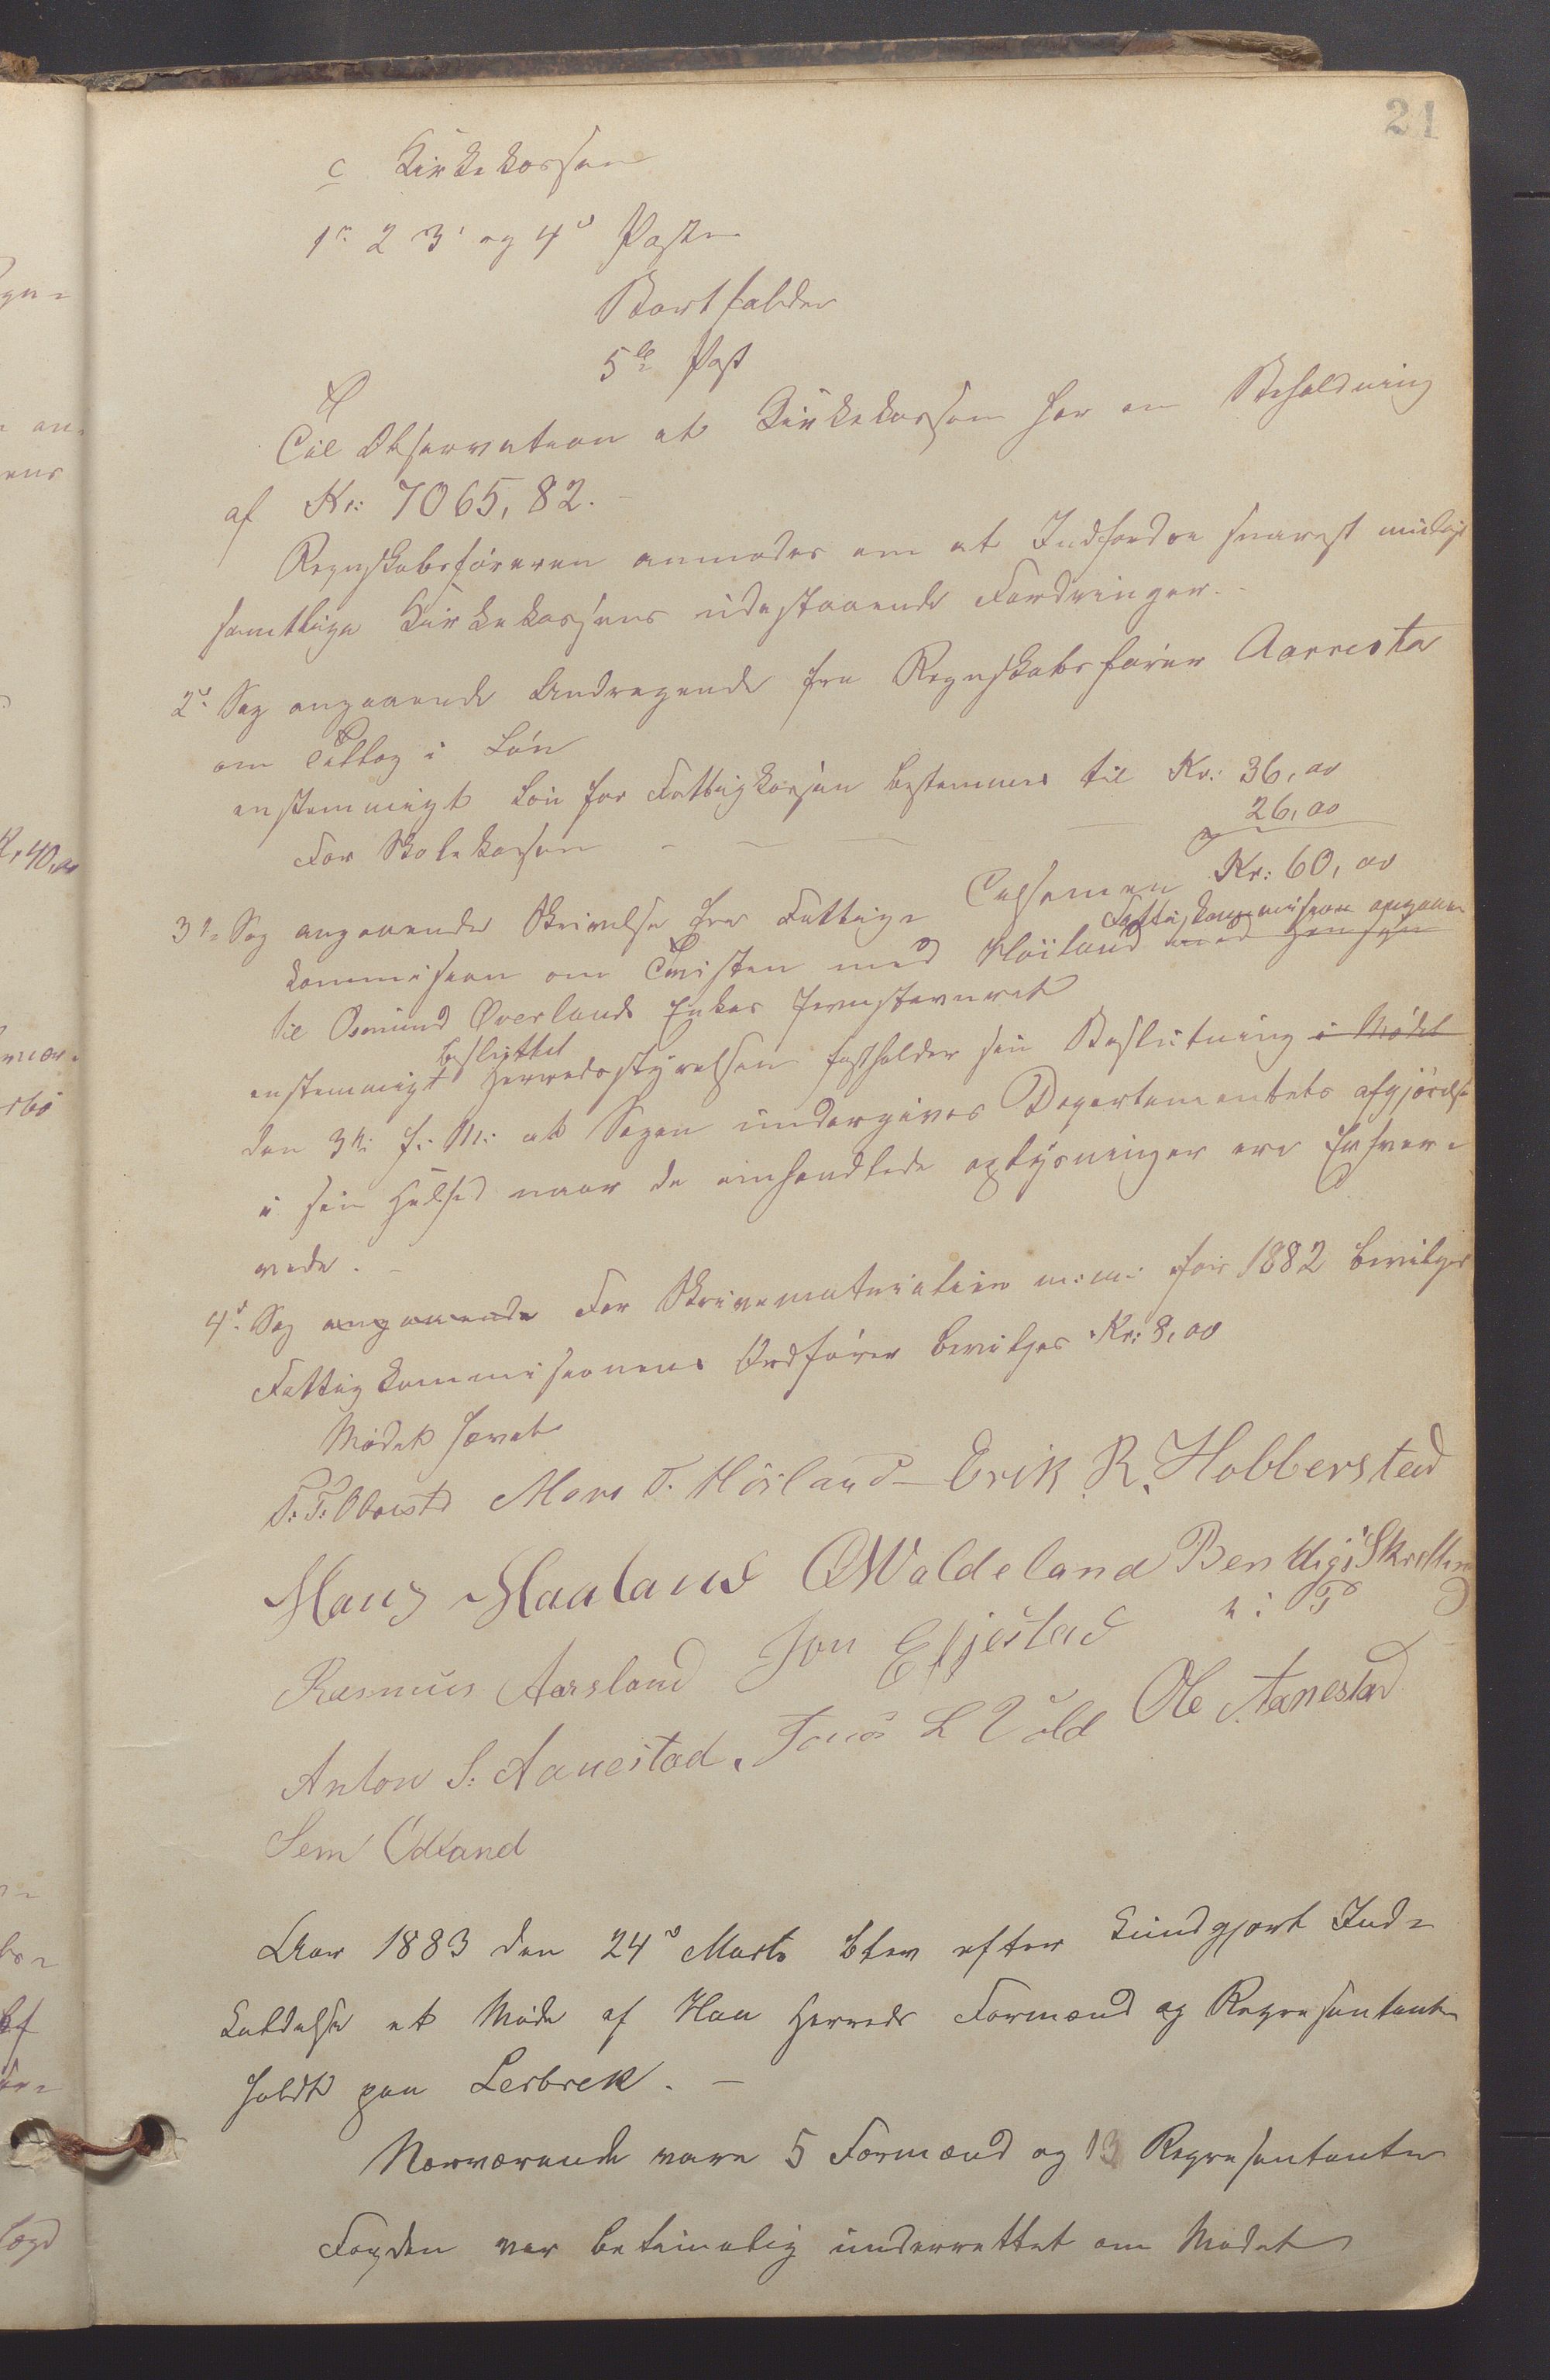 21
c Kirkekassen
1ste 2 3' og 4d Post
Bortfalder
5te Post
Til Observation at Kirkekassen har en Beholdning
af Kr: 7065,82.-
Regnskabsføreren anmodes om at Indfordre snarest muligt
samtlige Kirkekassens udestaaende Fordringer.-
2d Sag angaaende Andragende fra Regnskabsfører Aarrestad
om Tillæg i Løn
enstemmigt Løn for Fattigkassen bestemmes til Kr: 36,00
For Skolekassen - — — — 26,00
Tilsamen Kr: 60,00
3die Sag angaaende Skrivelse fra Fattig=
kommission om Tvisten med Høiland Fattigkommission angaaen med Hensyn
til Osmund Overlands Enkes Hemstavnret
enstemmigt besluttet Herredsstyrelsen fastholder sin Beslutning i Mødet
den 3die f: M: at Sagen undergives Departementets afgjørelse
i sin Helhed naar de omhandlede oplysninger ere Erhver=
vede.-
4d Sag angaaende For Skrivematerialier m:m: for 1882 bevilges
Fattigkommissionens Ordfører bevilges Kr: 8,00
Mødet hævet
T: T: Obrestd Mons T. Høiland - Erik R. Hobberstad
Hans Haaland O Waldeland Ben digt Skretting
Rasmus Aarsland Jon Efjestad
Anton S: Aanestad. Tønes L Vold Ole Aanestad
Sem Ødland
Aar 1883 den 24d Marts blev efter kundgjort Ind=
kaldelse et Møde af Haa Herreds Formænd og Repræsentanter
holdt paa Lerbrek.-
Nærværende vare 5 Formænd og 13 Repræsentanter
Fogden var betimelig underrettet om Mødet